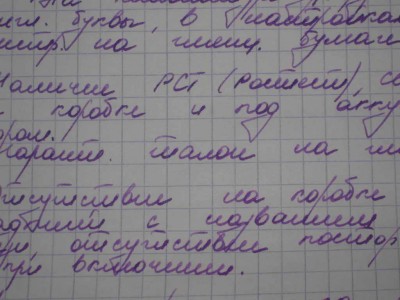 нгл. буквы, в
нтр. на глянц. бумаге
Наличие РСТ (Ростест)
коробке и под акку
ром.
Гарант. талон на гл
Отсутствии на коробке
с названием
отсутствии постор
при включении.